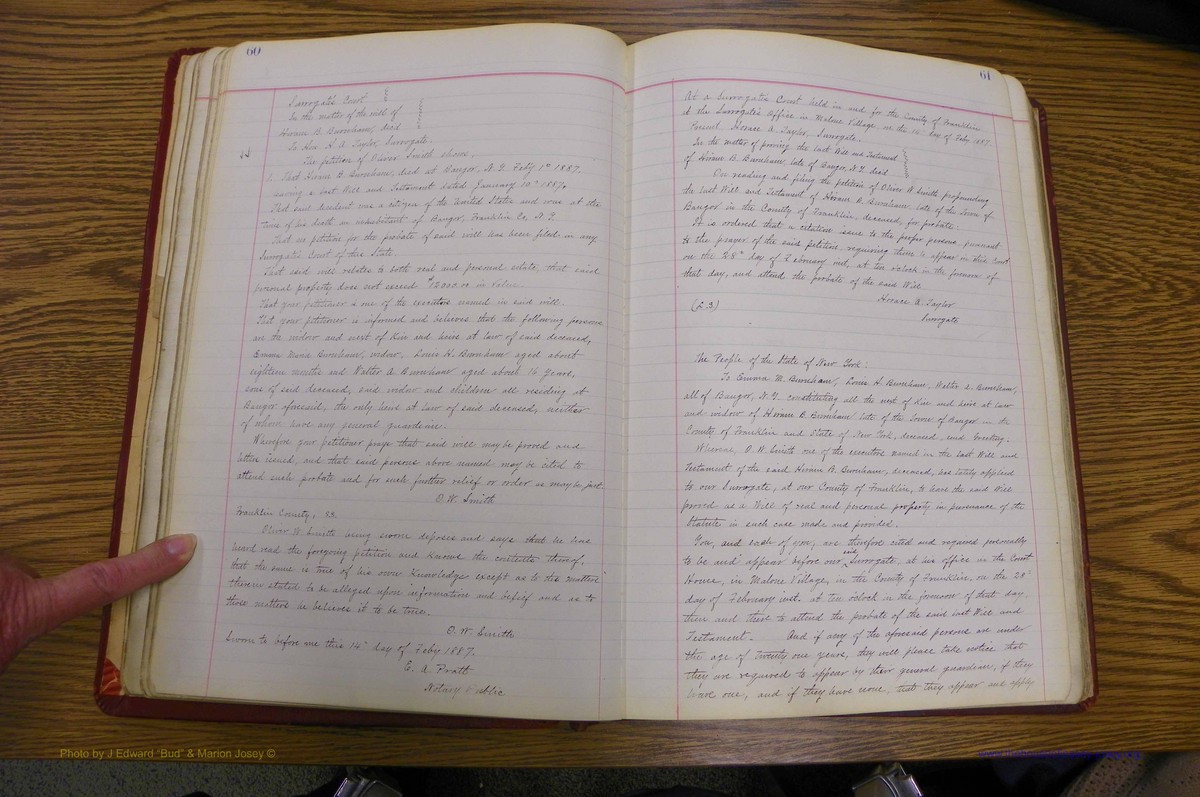 60
Surrogate's Court.
In the matter of the will of
Hiram B. Burnham, decd
To Hon. H. A. Taylor, Surrogate.
The petition of Oliver Smith shows,
1. That Hiram B. Burnham, died at Bangor, N.Y. Feby 1st 1887.
leaving a last Will and Testament dated January 10th 1887.
That said decedent was a citizen of the United States and was at the
time of his death an inhabitant of Bangor, Franklin Co, N.Y.
That no petition for the probate of said will has been filed in any
Surrogate's Court of this State.
That said will relates to both real and personal estate, that said
personal property does not exceed $2000.00 in value.
That your petitioner is one of the executors named in said will.
That your petitioner is informed and believes that the following persons
are the widow and next of Kin and heirs at law of said deceased,
Emma Burnham, widow, Louis H. Burnham aged about
eighteen months and Walter A Burnham aged about 16 years,
sons of said deceased, said widow and children all residing at
Bangor aforesaid, the only heirs at law of said deceased, neither
of whom have any general guardian.
Wherefore your petitioner prays that said will may be proved and
letters issued, and that said persons above named may be cited to
attend such probate and for such further relief or order as may be just.
O. W. Smith
Franklin County, SS.
Oliver W. Smith being sworn deposes and says that he has
heard read the foregoing petition and knows the contents thereof,
that the same is true of his own knowledge except as to the matters
therein stated to be alleged upon information and belief and as to
those matters he believes it to be true.
O. W. Smith
Sworn to before me this 14th day of Feby 1887.
E. A. Pratt
Notary Public
61
At a Surrogate's Court held in and for the County of Franklin
at the Surrogate's Office in Malone Village, on the 14th day of Feby. 1887.
Present Horace A. Taylor, Surrogate.
In the matter of proving the Last Will and Testament
of Hiram B. Burnham, late of Bangor, N.Y. decd
On reading and filing the petition of Oliver W. Smith propounding
the Last Will and Testament of Hiram B. Burnham late of the Town of
Bangor in the County of Franklin, deceased, for probate:
It is ordered that a citation issue to the proper persons, pursuant
to the prayer of the said petition, requiring them to appear in this Court
on the 28th day of February inst, at ten o'clock in the forenoon of
that day, and attend the probate of the said Will.
Horace A. Taylor
Surrogate
(L.S.)
The People of the State of New York:
To Emma M. Burnham, Louis H. Burnham, Walter A. Burnham,
all of Bangor, N.Y. constituting all the next of Kin and heirs at law
and widow of Hiram B. Burnham late of the town of Bangor in the
County of Franklin and State of New York, deceased, send Greeting:
Whereas, O. W. Smith one of the executors named in the Last Will and
Testament of the said Hiram B. Burnham, deceased, has lately applied
to our Surrogate, at our County of Franklin, to have the said Will
proved as a Will of real and personal property in pursuance of the
Statute in such case made and provided.
You, and each of you, are therefore cited and required personally
to be and appear before our said Surrogate, at his office in the Court
House, in Malone Village, in the County of Franklin, on the 28th
day of February inst. at ten o'clock in the forenoon of that day,
then and there to attend the probate of the said Last Will and
Testament. And if any of the aforesaid persons are under
the age of twenty one years, they will please take notice that
they are required to appear by their general guardian, if they
have one, and if they have none, that they appear and apply
Photo by J Edward "Bud" & Marion Josey ©